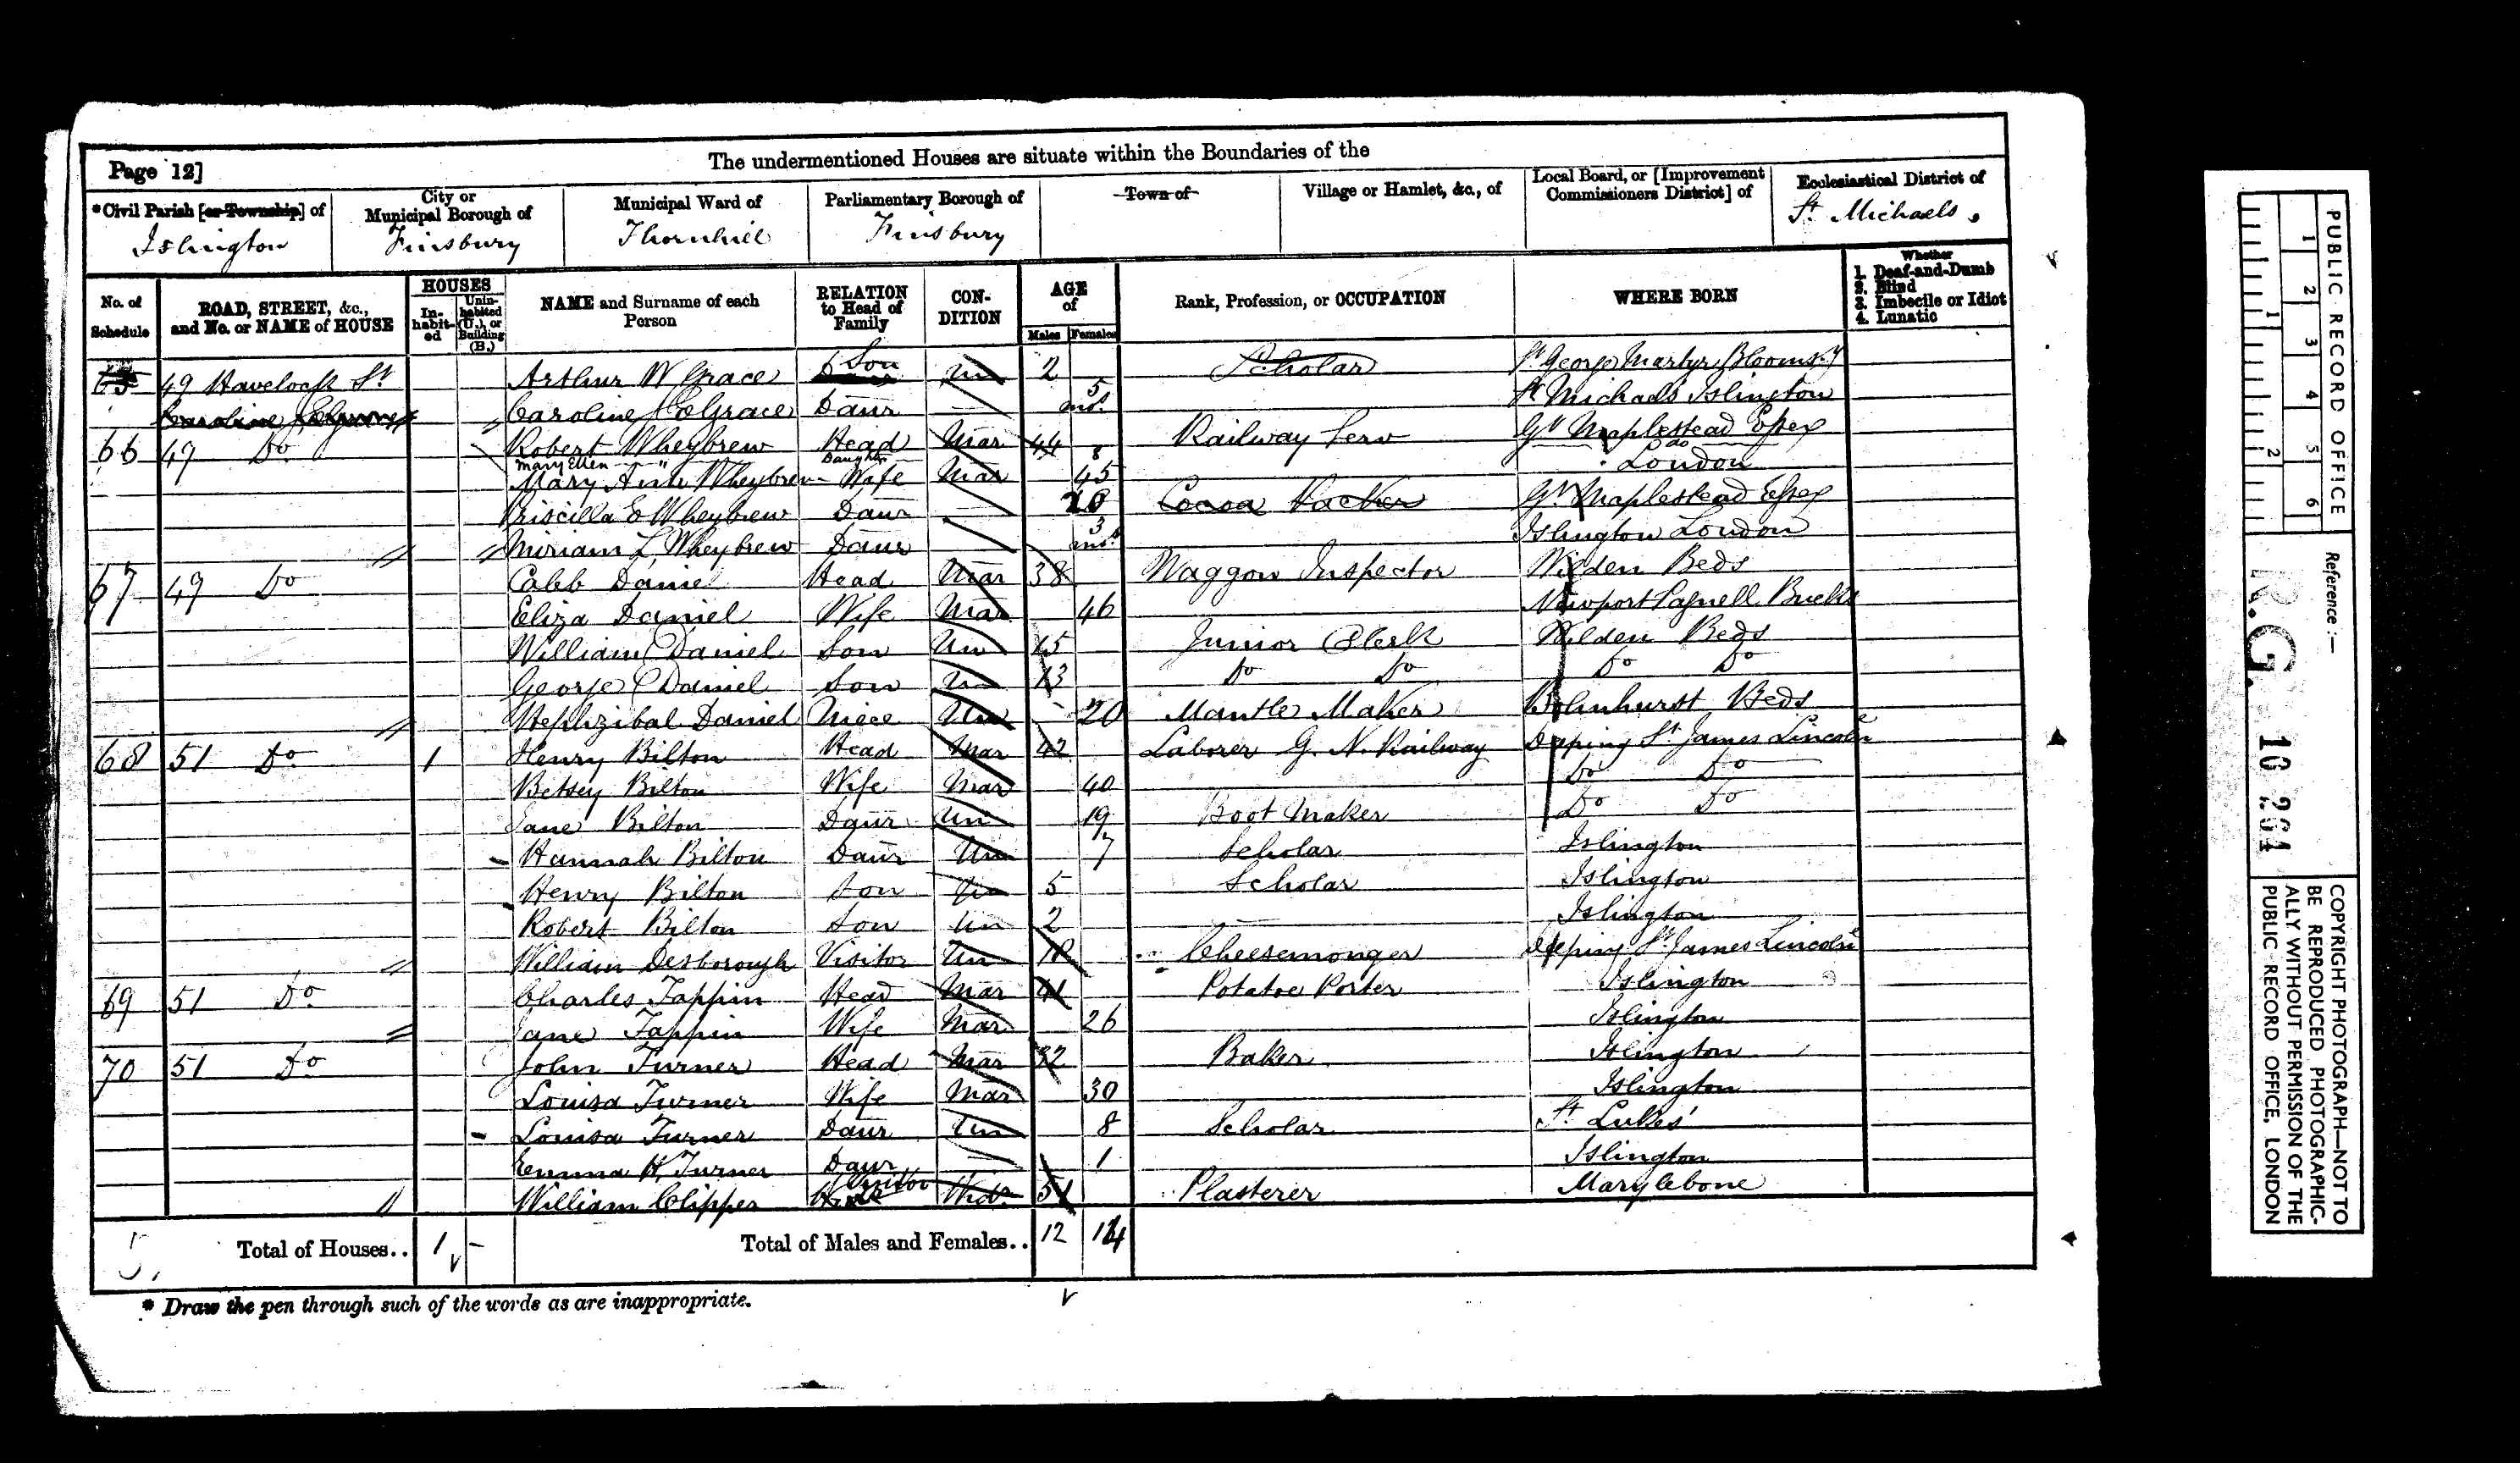 Page 12]
The undermentioned Houses are situate within the Boundaries of the
*Civil Parish [or Township] of Islington
City or Municipal Borough of Finsbury
Municipal Ward of Thornhill
Parliamentary Borough of Finsbury
Town of
Village or Hamlet, &c., of
Local Board, or [Improvement Commissioners District] of
Ecclesiastical District of St Michaels
No. of Schedule
ROAD, STREET, &c., and No. or NAME of HOUSE
HOUSES
In-habit-ed
Unin-habited (U.), or Building (B.)
NAME and Surname of each Person
RELATION to Head of Family
CON-DITION
AGE of
Males Females
Rank, Profession, or OCCUPATION
WHERE BORN
Whether
1. Deaf-and-Dumb
2. Blind
3. Imbecile or Idiot
4. Lunatic
65 49 Havelock St Arthur W Grace Son Un 2 Scholar St George Martyr Bloomsby
Caroline Grace Daur 5 mos. St Michaels Islington
66 49 Do Robert Wheybrew Head Mar 44 Railway Serv Gt Maplestead Essex
Mary Ellen " Daughtr 8 do
Mary Ann Wheybrew Wife Mar 45 London
Priscilla E Wheybrew Daur Cocoa Packer Gt Maplestead Essex
Miriam L Wheybrew Daur 3 mos Islington London
67 49 Do Caleb Daniel Head Mar 38 Waggon Inspector Wilden Beds
Eliza Daniel Wife Mar 46 Newport Pagnell Bucks
William C Daniel Son Un 15 Junior Clerk Wilden Beds
George C Daniel Son Un 13 Do Do Do Do
Hephzibal Daniel Niece Un 20 Mantle Maker Bolnhurst Beds
68 51 Do 1 Henry Bilton Head Mar 42 Laborer G. N. Railway Deeping St James Lincoln
Betsey Bilton Wife Mar 40 Do Do
Jane Bilton Daur Un 19 Boot Maker Do Do
Hannah Bilton Daur Un 7 Scholar Islington
Henry Bilton Son Un 5 Scholar Islington
Robert Bilton Son Un 2 Islington
William Desborough Visitor Un 18 Cheesemonger Deeping St James Lincoln
69 51 Do Charles Tappin Head Mar 41 Potatoe Porter Islington
Jane Tappin Wife Mar 26 Islington
70 51 Do John Turner Head Mar 32 Baker Islington
Louisa Turner Wife Mar 30 Islington
Louisa Turner Daur Un 8 Scholar St Lukes
Emma H Turner Daur 1 Islington
William Clipper Visitor Widr 51 Plasterer Marylebone
Total of Houses.. 1 -
Total of Males and Females.. 12 14
* Draw the pen through such of the words as are inappropriate.
PUBLIC RECORD OFFICE
1 2 3 4 5 6
1 2
Reference:—
R.G. 10
COPYRIGHT PHOTOGRAPH—NOT TO
BE REPRODUCED PHOTOGRAPHIC-
ALLY WITHOUT PERMISSION OF THE
PUBLIC RECORD OFFICE, LONDON